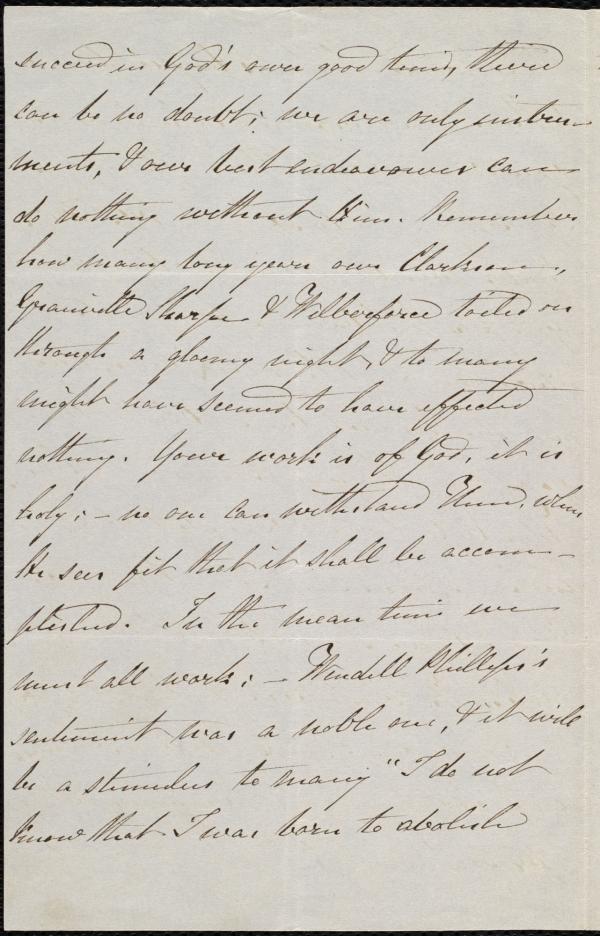 succeed in God's own good time, there
can be no doubt; we are only instru-
ments, & our best endeavours can
do nothing without Him. Remember
how many long years our Clarkson,
Granville Sharpe & Wilberforce toiled on
through a gloomy night, & to many
might have seemed to have effected
nothing. Your work is of God, it is
holy; – no one can withstand Him, when
He sees fit that it shall be accom-
plished. In the mean time we
must all work; – Wendell Phillips's
sentiment was a noble one, & it will
be a stimulus to many "I do not
know that I was born to abolish